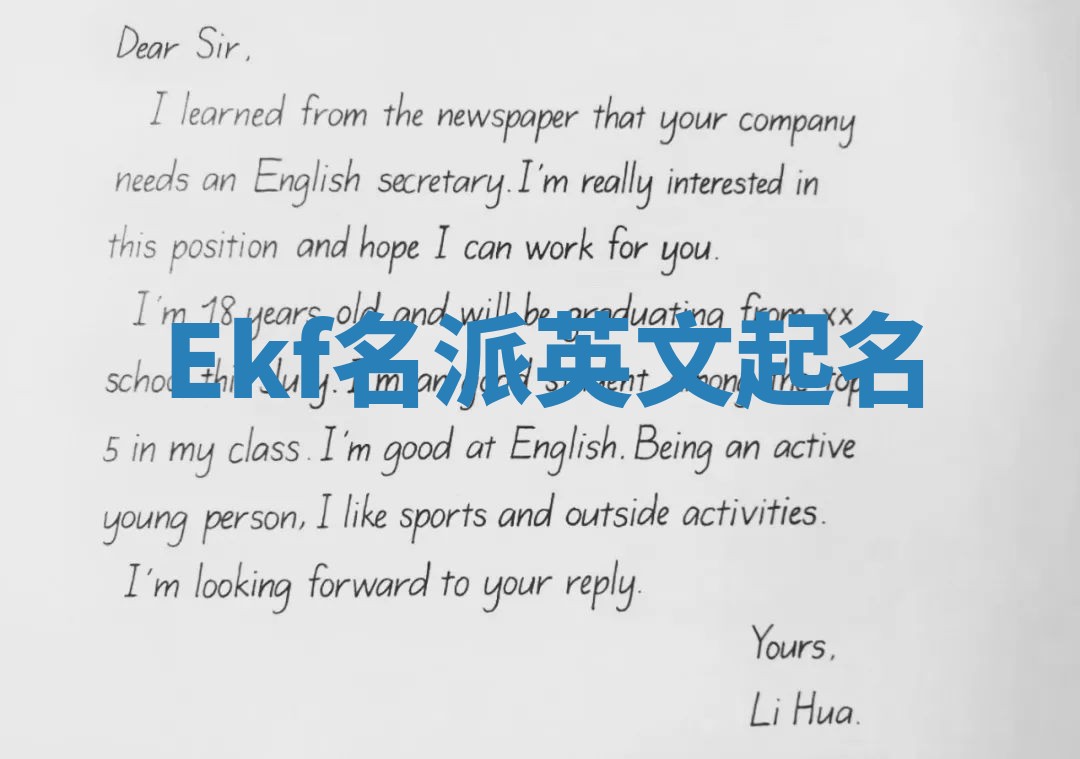 Dear Sir,
I learned from the newspaper that your company
needs an English secretary. I'm really interested in
this position and hope I can work for you.
I'm 18 years old and will be graduating from xx
Ekf名派英文起名
school this July. I'm an good student among the top
5 in my class. I'm good at English. Being an active
young person, I like sports and outside activities.
I'm looking forward to your reply.
Yours,
Li Hua.